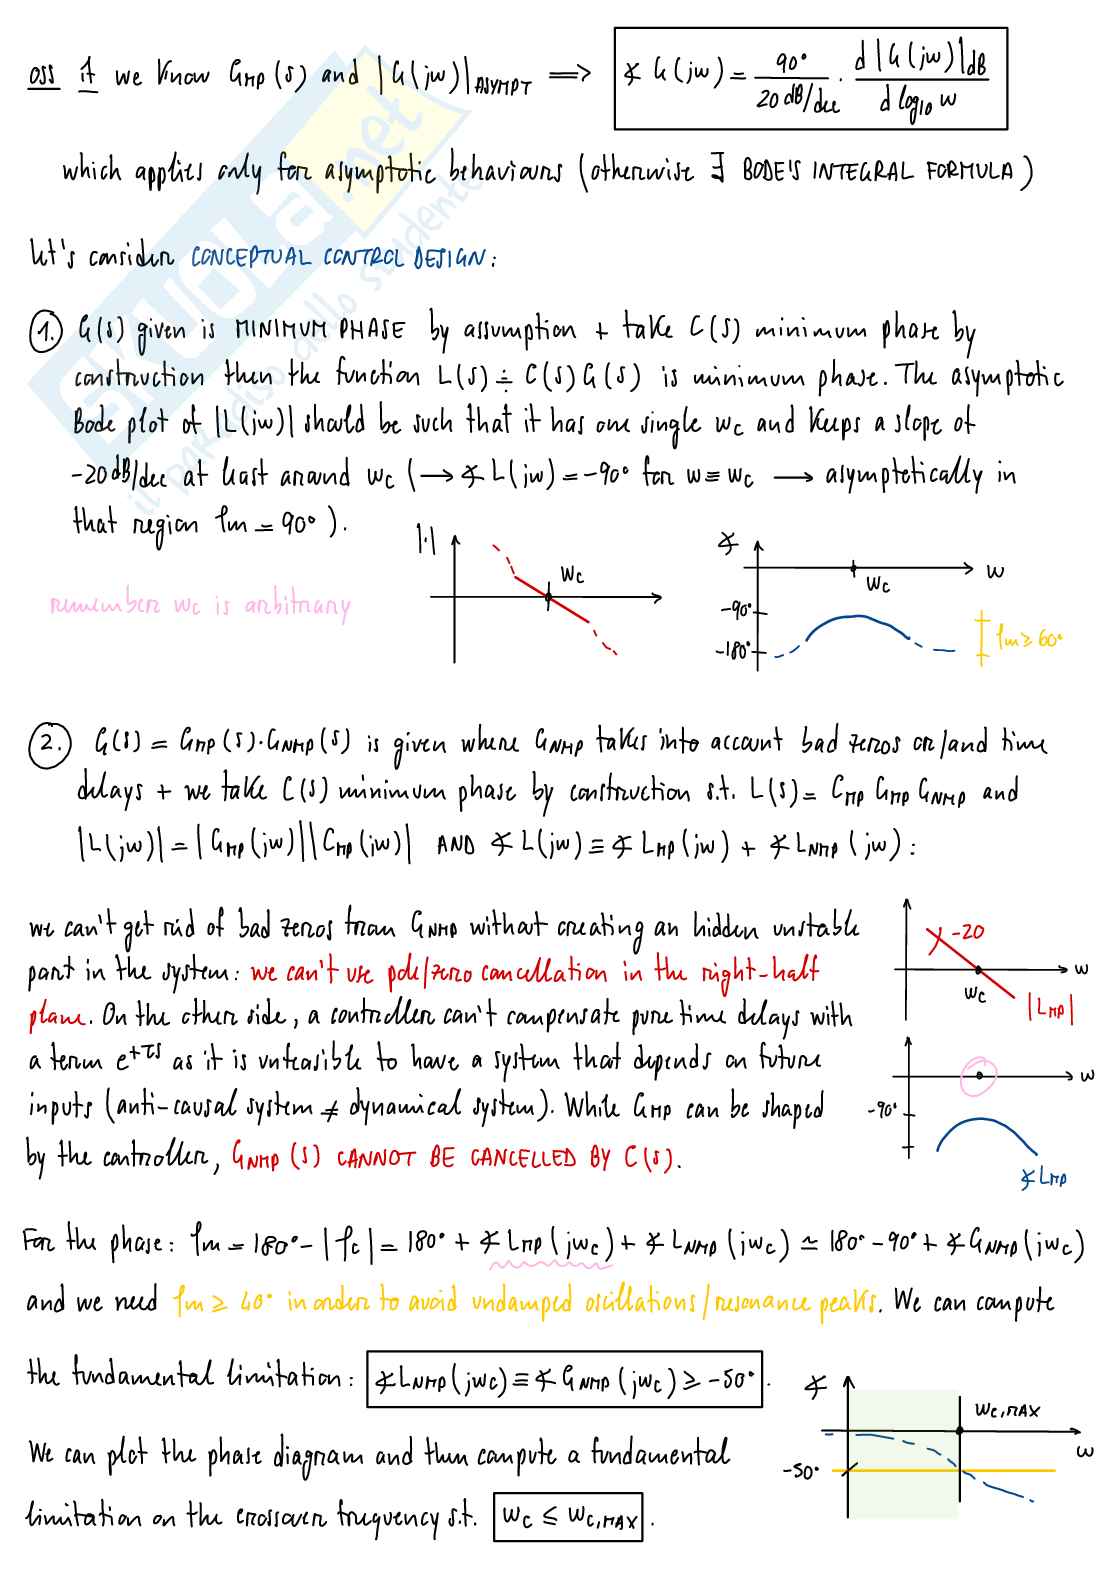 oss if we know GMP(s) and |G(jw)|ASYMPT ⟹ ∡ G(jw) = 90° / 20 dB/dec · d |G(jw)|dB / d log10 w
which applies only for asymptotic behaviours (otherwise ∃ BODE'S INTEGRAL FORMULA)
let's consider CONCEPTUAL CONTROL DESIGN:
1. G(s) given is MINIMUM PHASE by assumption + take C(s) minimum phase by
construction then the function L(s) ≐ C(s)G(s) is minimum phase. The asymptotic
Bode plot of |L(jw)| should be such that it has one single wc and keeps a slope of
-20 dB/dec at least around wc (→ ∡ L(jw) = -90° for w ≡ wc → asymptotically in
that region φm = 90°).
|·|
wc
∡
w
wc
-90°
-180°
φm ≥ 60°
remember wc is arbitrary
2. G(s) = GMP(s)·GNMP(s) is given where GNMP takes into account bad zeros or/and time
delays + we take C(s) minimum phase by construction s.t. L(s) = CMP GMP GNMP and
|L(jw)| = |GMP(jw)||CMP(jw)| AND ∡ L(jw) ≡ ∡ LMP(jw) + ∡ LNMP(jw):
we can't get rid of bad zeros from GNMP without creating an hidden unstable
part in the system: we can't use pole/zero cancellation in the right-half
plane. On the other side, a controller can't compensate pure time delays with
a term e^+τs as it is unfeasible to have a system that depends on future
inputs (anti-causal system ≠ dynamical system). While GMP can be shaped
by the controller, GNMP(s) CANNOT BE CANCELLED BY C(s).
-20
w
wc
|LMP|
w
-90°
∡ LMP
For the phase: φm = 180° - |φc| = 180° + ∡ LMP(jwc) + ∡ LNMP(jwc) ≃ 180° - 90° + ∡ GNMP(jwc)
and we need φm ≥ 40° in order to avoid undamped oscillations/resonance peaks. We can compute
the fundamental limitation: ∡ LNMP(jwc) ≡ ∡ GNMP(jwc) ≥ -50°.
We can plot the phase diagram and then compute a fundamental
limitation on the crossover frequency s.t. wc ≤ wc,MAX.
∡
wc,MAX
w
-50°
SKUOLA.net
il paradiso dello studente